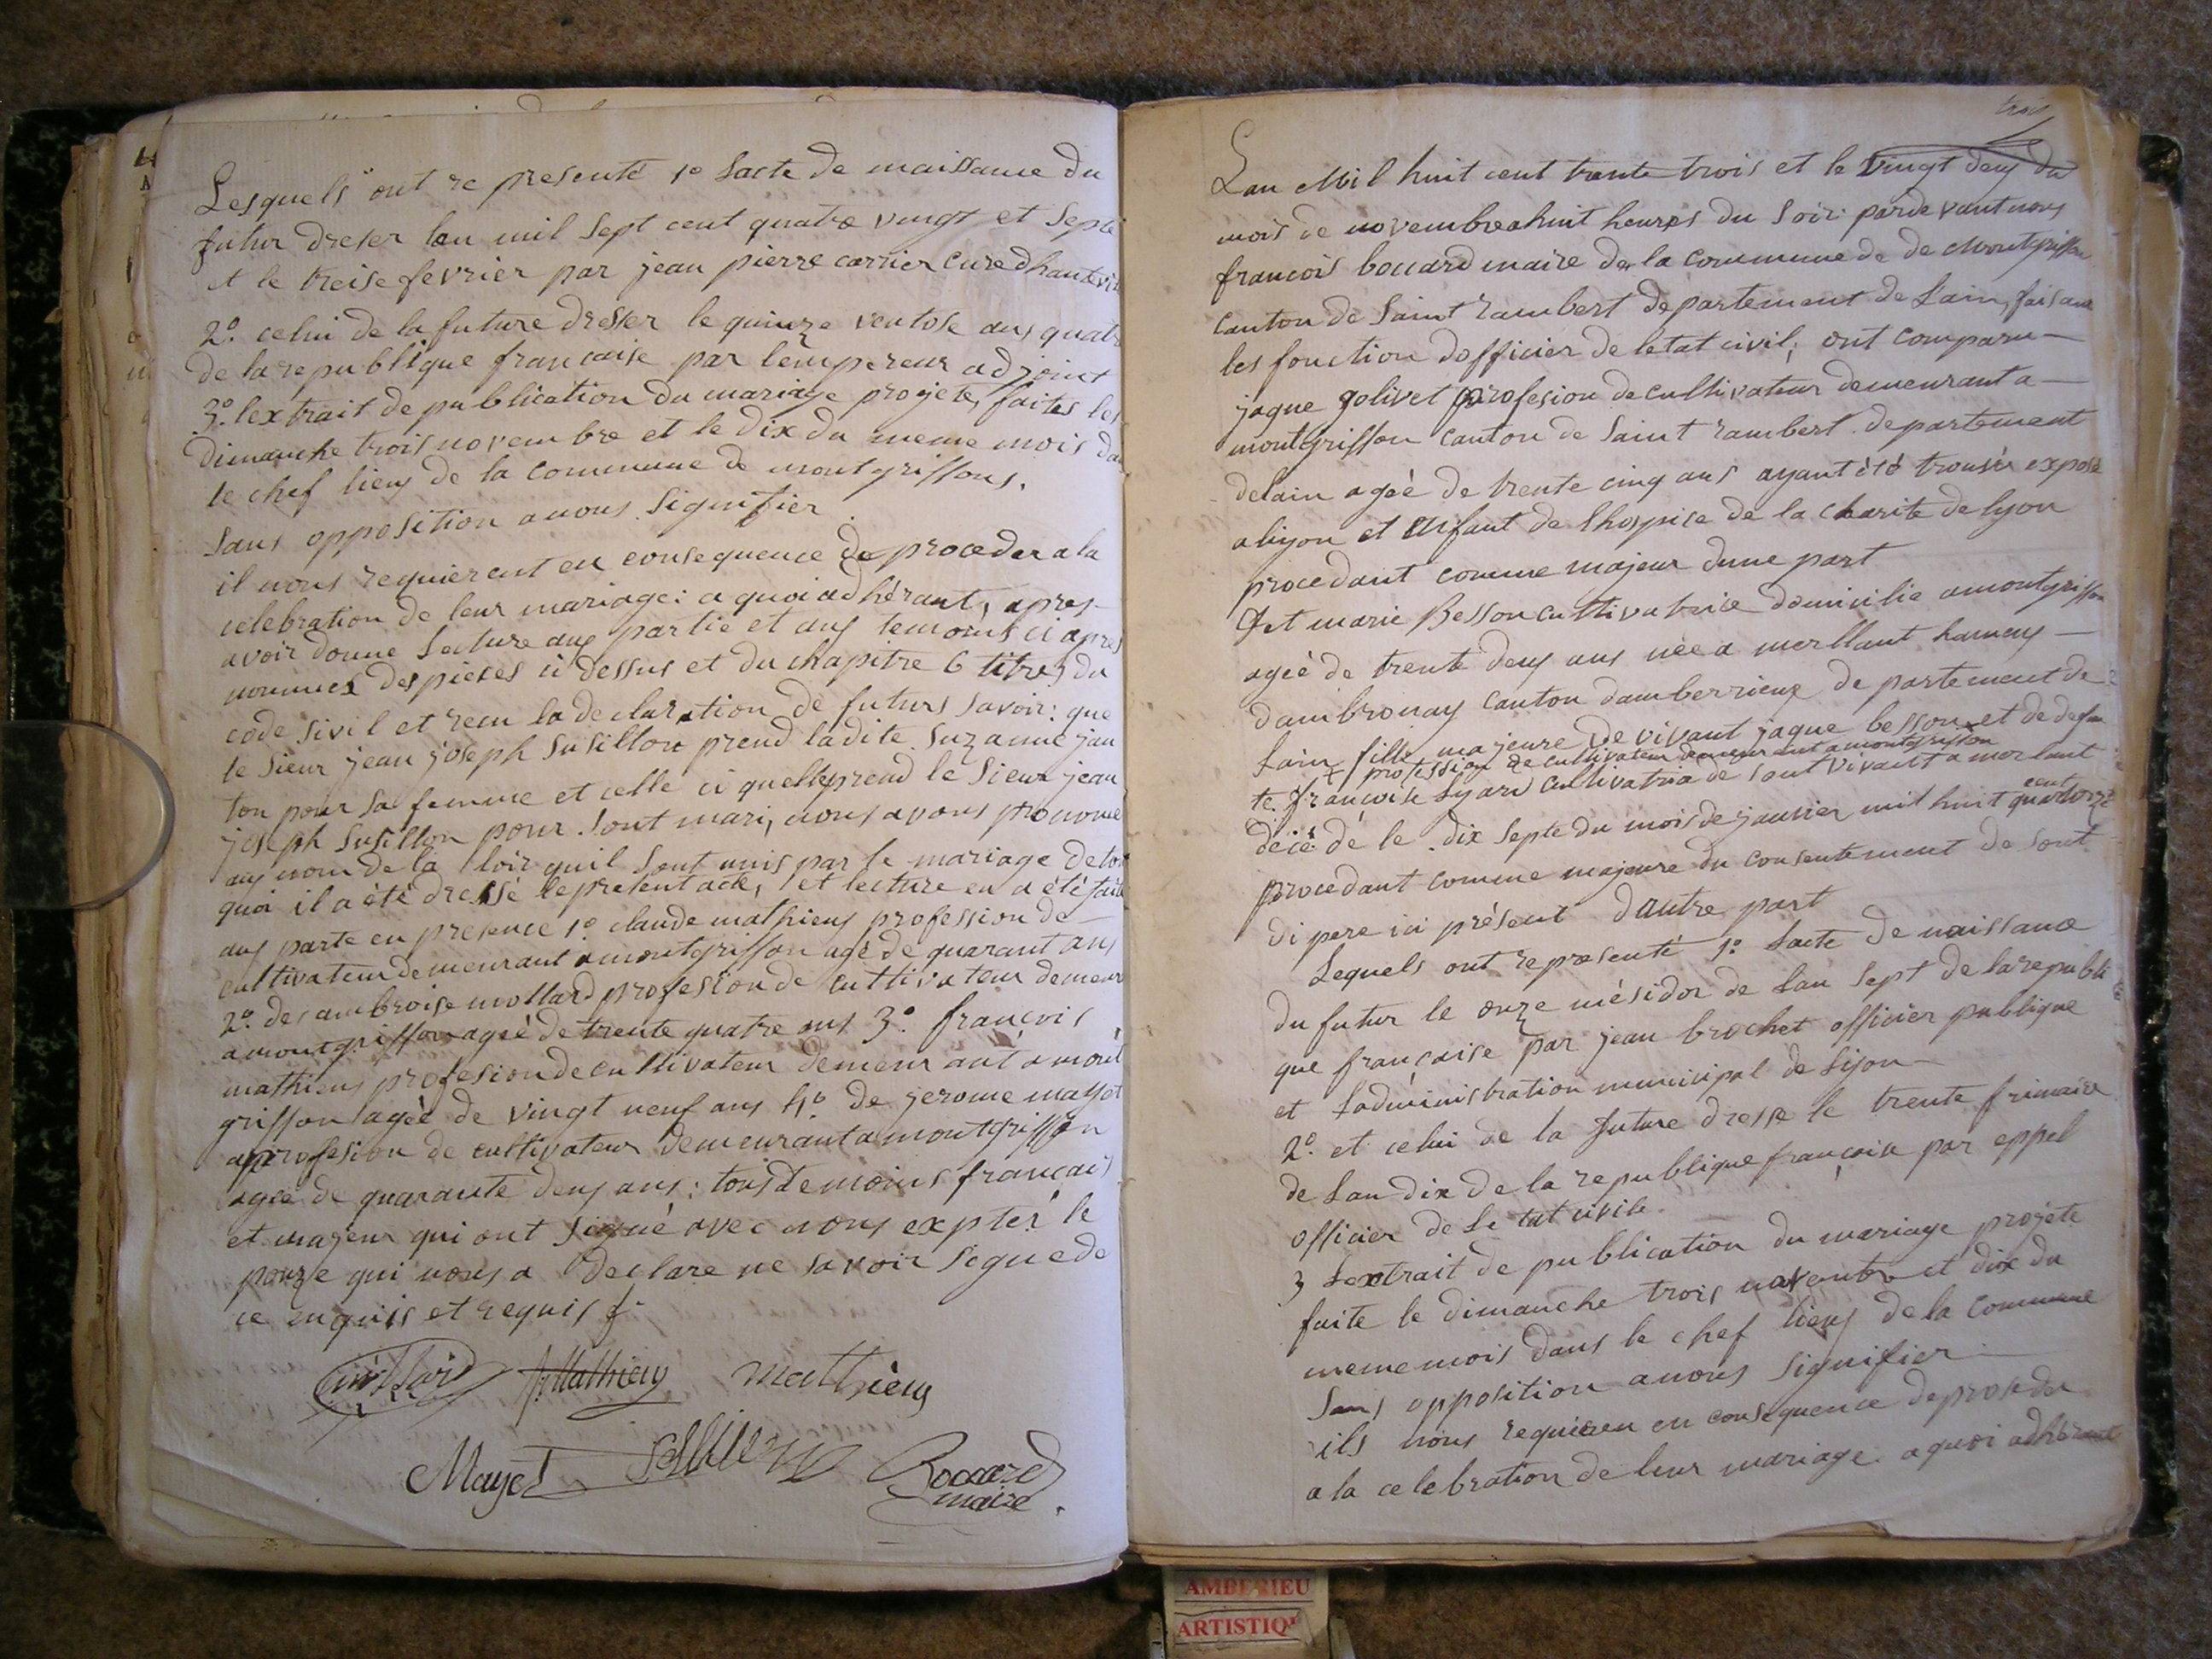 Lesquels ont re presenté 1º Lacte de naissance du
futur dreser lan mil sept cent quatre vingt et sept
et le treise fevrier par jean pierre carrier cure dhautevil
2º. celui de la future dresser le quinze ventose ans quatr
de la republique francaise par lempereur adjoint
3º. lextrait de publication du mariage projeté, faites les
dimanche trois novembre et le dix du meme mois da
le chef lieu de la commune de montgriffons.
Sans opposition a nous signifier
il nous requierent en consequence de proceder a la
celebration de leur mariage: a quoi adhérant, apres
avoir donne lecture aux partie et aux temoins ci apres
nommes des pieces ci dessus et du chapitre 6 titre 5 du
code sivil et recu la declaration de futurs savoir: que
le sieur jean joseph Susillon prend ladite Suzanne jan
ton pour sa femme et celle ci quelle prend le Sieur jean
joseph Susillon pour sont mari, nous avons prononce
au nom de la loir quil sont unis par le mariage de to
quoi il a été dressé le present acte, et lecture en a été fait
aux parte en presence 1º claude mathieu profession de
cultivateur demeurant a montgriffon agé de quarant ans
2º. de ambroise mollard profesion de cultivateur demeur
a montgriffon ageé de trente quatre ans 3º. francois
mathieu profesion de cultivateur demeurant a mont
griffon ageé de vingt neuf ans 4º. de jerome mayet
profesion de cultivateur demeurant a montgriffon
agee de quarante deux ans: tous temoins francais
et majeur qui ont signé avec nous expter le
pouze qui nous a declare ne savoir signe de
ce enquis et requis
J. Mathieu mathieu
Mayet Bocard
maire.
trois
Lan Mil huit cent trente trois et le vingt deux du
mois de novembre a huit heures du soir par devant nous
francois boccard maire de la commune de de Montgriffon
canton de Saint rambert departement de Lain, faisant
les fonction dofficier de letat civil; ont comparu
jaque golivet profesion de cultivateur demeurant a
montgriffon canton de Saint rambert departement
delain ageé de trente cinq ans ayant été trouvér exposé
a lyon et enfant de Lhospice de la charite de lyon
procedant comme majeur dune part
Et marie Besson cultivatrice domicilie a montgriffon
ageé de trente deux ans née a merllant hameau
dambronay canton damberrieux departement de
Lain fille majeure de vivant jaque besson et de defun
profession de cultivateur demeurant a montgriffon
te françoise Lyard cultivatrice de sont vivant a morlant
décédé le dix septe du mois de janvier mil huit cent quatorze
procedant comme majeure du consentement de sont
di pere ici présent dautre part
Lequels ont representé 1º. Lacte de naissance
du futur le onze mésidor de Lan sept de la republi
que francaise par jean brochet officier publique
et Ladministration municipal de Lijon
2º. et celui de la future dresse le trente frimaire
de Lan dix de la republique françaisse par eppel
officier de Le tat civile
3 Lextrait de publication du mariage projete
faite le dimanche trois novembre et dix du
meme mois dans le chef lieux de la commune
Sans opposition a nous signifier
ils nous requieren en consequence de proseder
a la celebration de leur mariage a quoi adhérant
AMBERIEU
ARTISTIQU